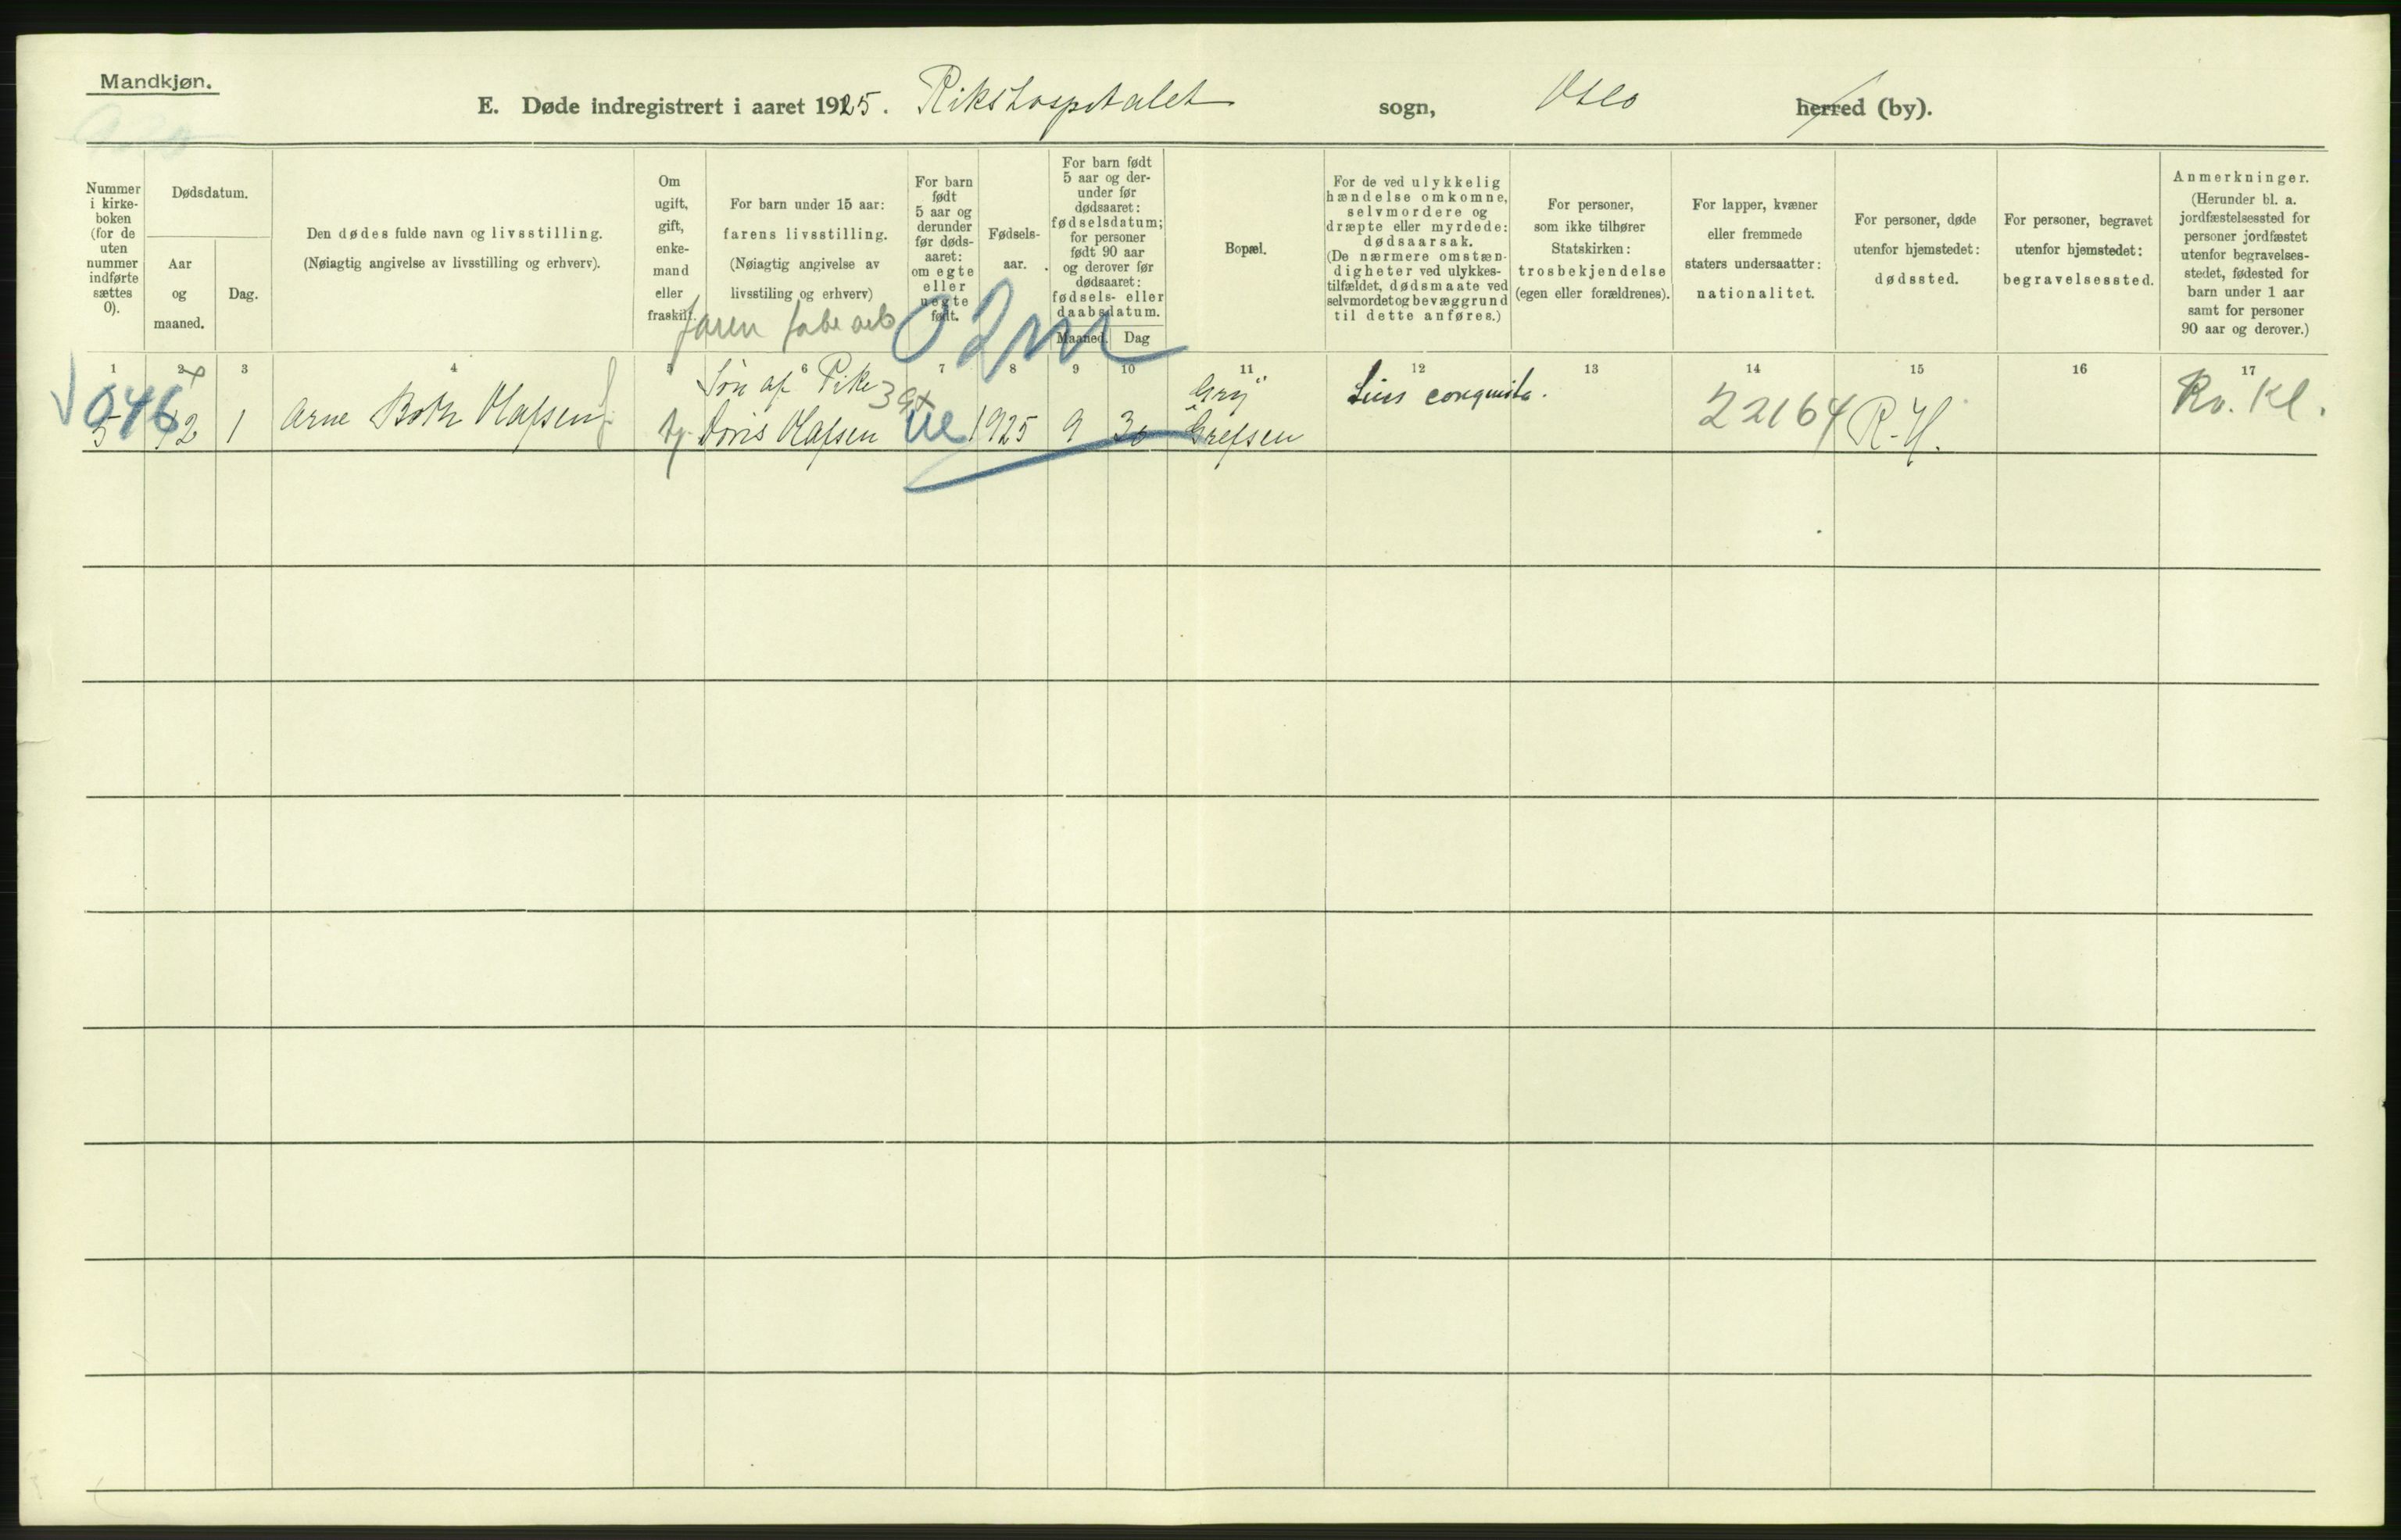 Mandkjøn.
E. Døde indregistrert i aaret 1925. Rikshospitalet sogn, Oslo herred (by).
Nummer i kirkeboken (for de uten nummer indførte sættes 0).
Dødsdatum.
Aar og maaned.
Dag.
Den dødes fulde navn og livsstilling.
(Nøiagtig angivelse av livsstilling og erhverv).
Om ugift, gift, enkemand eller fraskilt.
For barn under 15 aar:
farens livsstilling.
(Nøiagtig angivelse av
livsstiling og erhverv)
For barn født 5 aar og derunder før dødsaaret: om egte eller uegte født.
Fødselsaar.
For barn født 5 aar og derunder før dødsaaret: fødselsdatum; for personer født 90 aar og derover før dødsaaret: fødsels- eller daabsdatum.
Maaned. Dag
Bopæl.
For de ved ulykkelig hændelse omkomne, selvmordere og dræpte eller myrdede: dødsaarsak.
(De nærmere omstændigheter ved ulykkestilfældet, dødsmaate ved selvmordet og bevæggrund til dette anføres.)
For personer, som ikke tilhører Statskirken: trosbekjendelse (egen eller forældrenes).
For lapper, kvæner eller fremmede staters undersaatter: nationalitet.
For personer, døde utenfor hjemstedet: dødssted.
For personer, begravet utenfor hjemstedet: begravelsessted.
Anmerkninger.
(Herunder bl. a. jordfæstelsessted for personer jordfæstet utenfor begravelsesstedet, fødested for barn under 1 aar samt for personer 90 aar og derover.)
faren fabr arb
02m
1 2 3 4 5 6 7 8 9 10 11 12 13 14 15 16 17
046
Søn af Pike
Lues conquisita.
22164
5 12 1 Arne Both Olafsen Ug. Doris Olafsen ue 1925 9 30 Grefsen
R.H.
Kv. Kl.